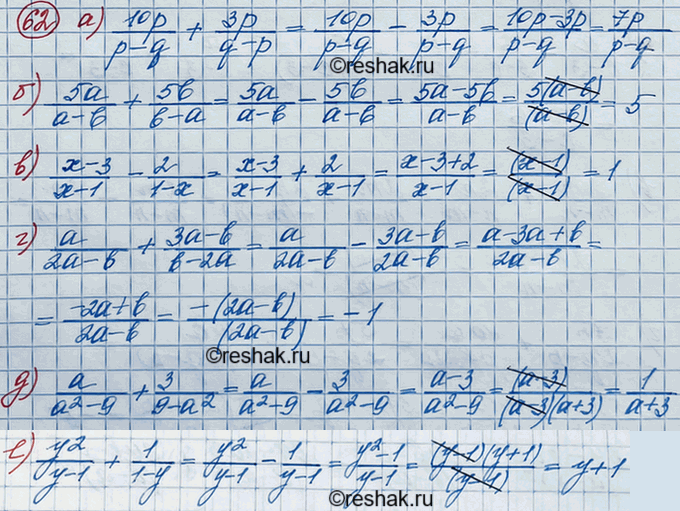 62 а) 10p/(p-q) + 3p/(q-p) = 10p/(p-q) - 3p/(p-q) = (10p-3p)/(p-q) = 7p/(p-q)
©reshak.ru
б) 5a/(a-b) + 5b/(b-a) = 5a/(a-b) - 5b/(a-b) = (5a-5b)/(a-b) = 5(a-b)/(a-b) = 5
в) (x-3)/(x-1) - 2/(1-x) = (x-3)/(x-1) + 2/(x-1) = (x-3+2)/(x-1) = (x-1)/(x-1) = 1
г) a/(2a-b) + (3a-b)/(b-2a) = a/(2a-b) - (3a-b)/(2a-b) = (a-3a+b)/(2a-b) =
= (-2a+b)/(2a-b) = -(2a-b)/(2a-b) = -1
©reshak.ru
д) a/(a²-9) + 3/(9-a²) = a/(a²-9) - 3/(a²-9) = (a-3)/(a²-9) = (a-3)/((a-3)(a+3)) = 1/(a+3)
е) y²/(y-1) + 1/(1-y) = y²/(y-1) - 1/(y-1) = (y²-1)/(y-1) = (y-1)(y+1)/(y-1) = y+1
©reshak.ru